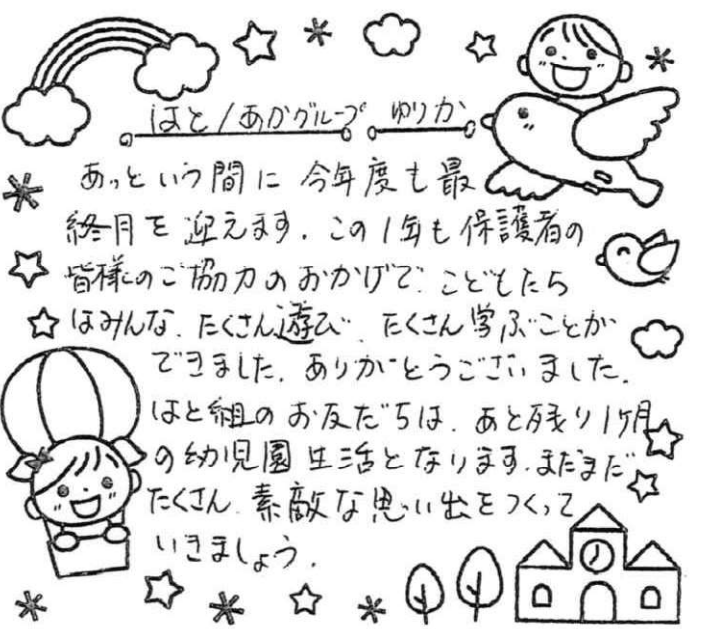 はと/あかグループ ゆりか
あっという間に 今年度も最
終月を迎えます。この1年も保護者の
皆様のご協力のおかげで、こどもたち
はみんな、たくさん遊び、たくさん学ぶことが
できました。ありがとうございました。
はと組のお友だちは、あと残り1ヶ月
の幼児園生活となります。まだまだ
たくさん、素敵な思い出をつくって
いきましょう。